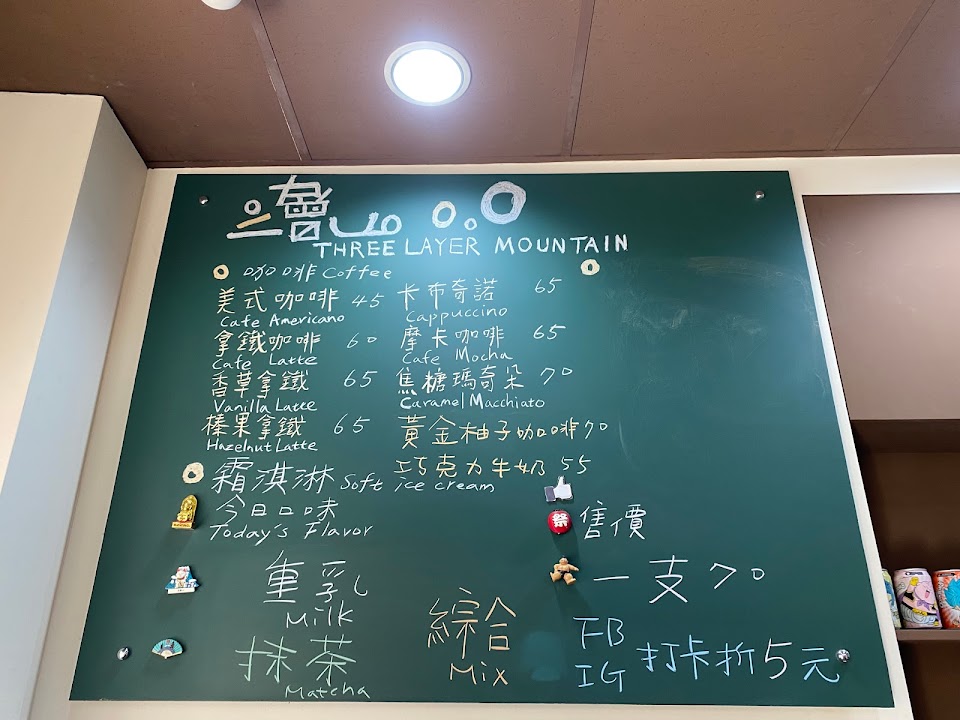 THREE LAYER MOUNTAIN
咖啡 Coffee
美式咖啡 45 卡布奇諾 65
Cafe Americano Cappuccino
拿鐵咖啡 60 摩卡咖啡 65
Cafe Latte Cafe Mocha
香草拿鐵 65 焦糖瑪奇朵 70
Vanilla Latte Caramel Macchiato
榛果拿鐵 65 黃金柚子咖啡 70
Hazelnut Latte
巧克力牛奶 55
霜淇淋 Soft ice cream
今日口味
Today's Flavor
祭 售價
重乳 一支 70
Milk
綜合
Mix
抹茶
Matcha
FB
IG 打卡折5元